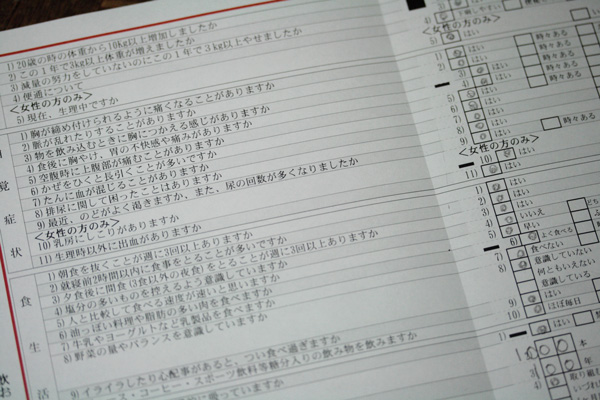 1) 20歳の時の体重から10kg以上増加しましたか
2) この1年で3kg以上体重が増えましたか
3) 減量の努力をしていないのにこの1年で3kg以上やせましたか
4) 便通について
<女性の方のみ>
5) 現在、生理中ですか
自覚症状
1) 胸が締め付けられるように痛くなることがありますか
2) 脈が乱れたりすることがありますか
3) 物を飲み込むときに胸につかえる感じがありますか
4) 食後に胸やけ、胃の不快感や痛みがありますか
5) 空腹時に上腹部が痛むことがありますか
6) かぜをひくと長引くことが多いですか
7) たんに血が混じることがありますか
8) 排尿に関して困ったことはありますか
9) 最近、のどがよく渇きますか、また、尿の回数が多くなりましたか
<女性の方のみ>
10) 乳房にしこりがありますか
11) 生理時以外に出血がありますか
食生活
1) 朝食を抜くことが週に3回以上ありますか
2) 就寝前2時間以内に食事をとることが週に3回以上ありますか
3) 夕食後に間食(3食以外の夜食)をとることが多いですか
4) 塩分の多いものを控えるよう意識していますか
5) 人と比較して食べる速度が速いと思いますか
6) 油っぽい料理や脂肪の多い肉を食べますか
7) 牛乳やヨーグルトなど乳製品を食べますか
8) 野菜の量やバランスを意識していますか
9) イライラしたり心配事があると、つい食べ過ぎますか
コーヒー・スポーツ飲料等糖分入りの飲み物を飲みますか
4)
<女性の方のみ>
5) はい
1) はい 時々ある
2) はい 時々ある
3) はい 時々ある
4) はい 時々ある
5) はい
6) はい
7) はい
8) はい
9) はい 時々ある
<女性の方のみ>
10) はい
11) はい
1) はい
2) はい
3) はい
4) いいえ
5) 早い
6) よく食べる
7) 食べない
8) 意識していない
何ともいえない
意識している
9) はい
10) ほぼ毎日
1) はい
本
年